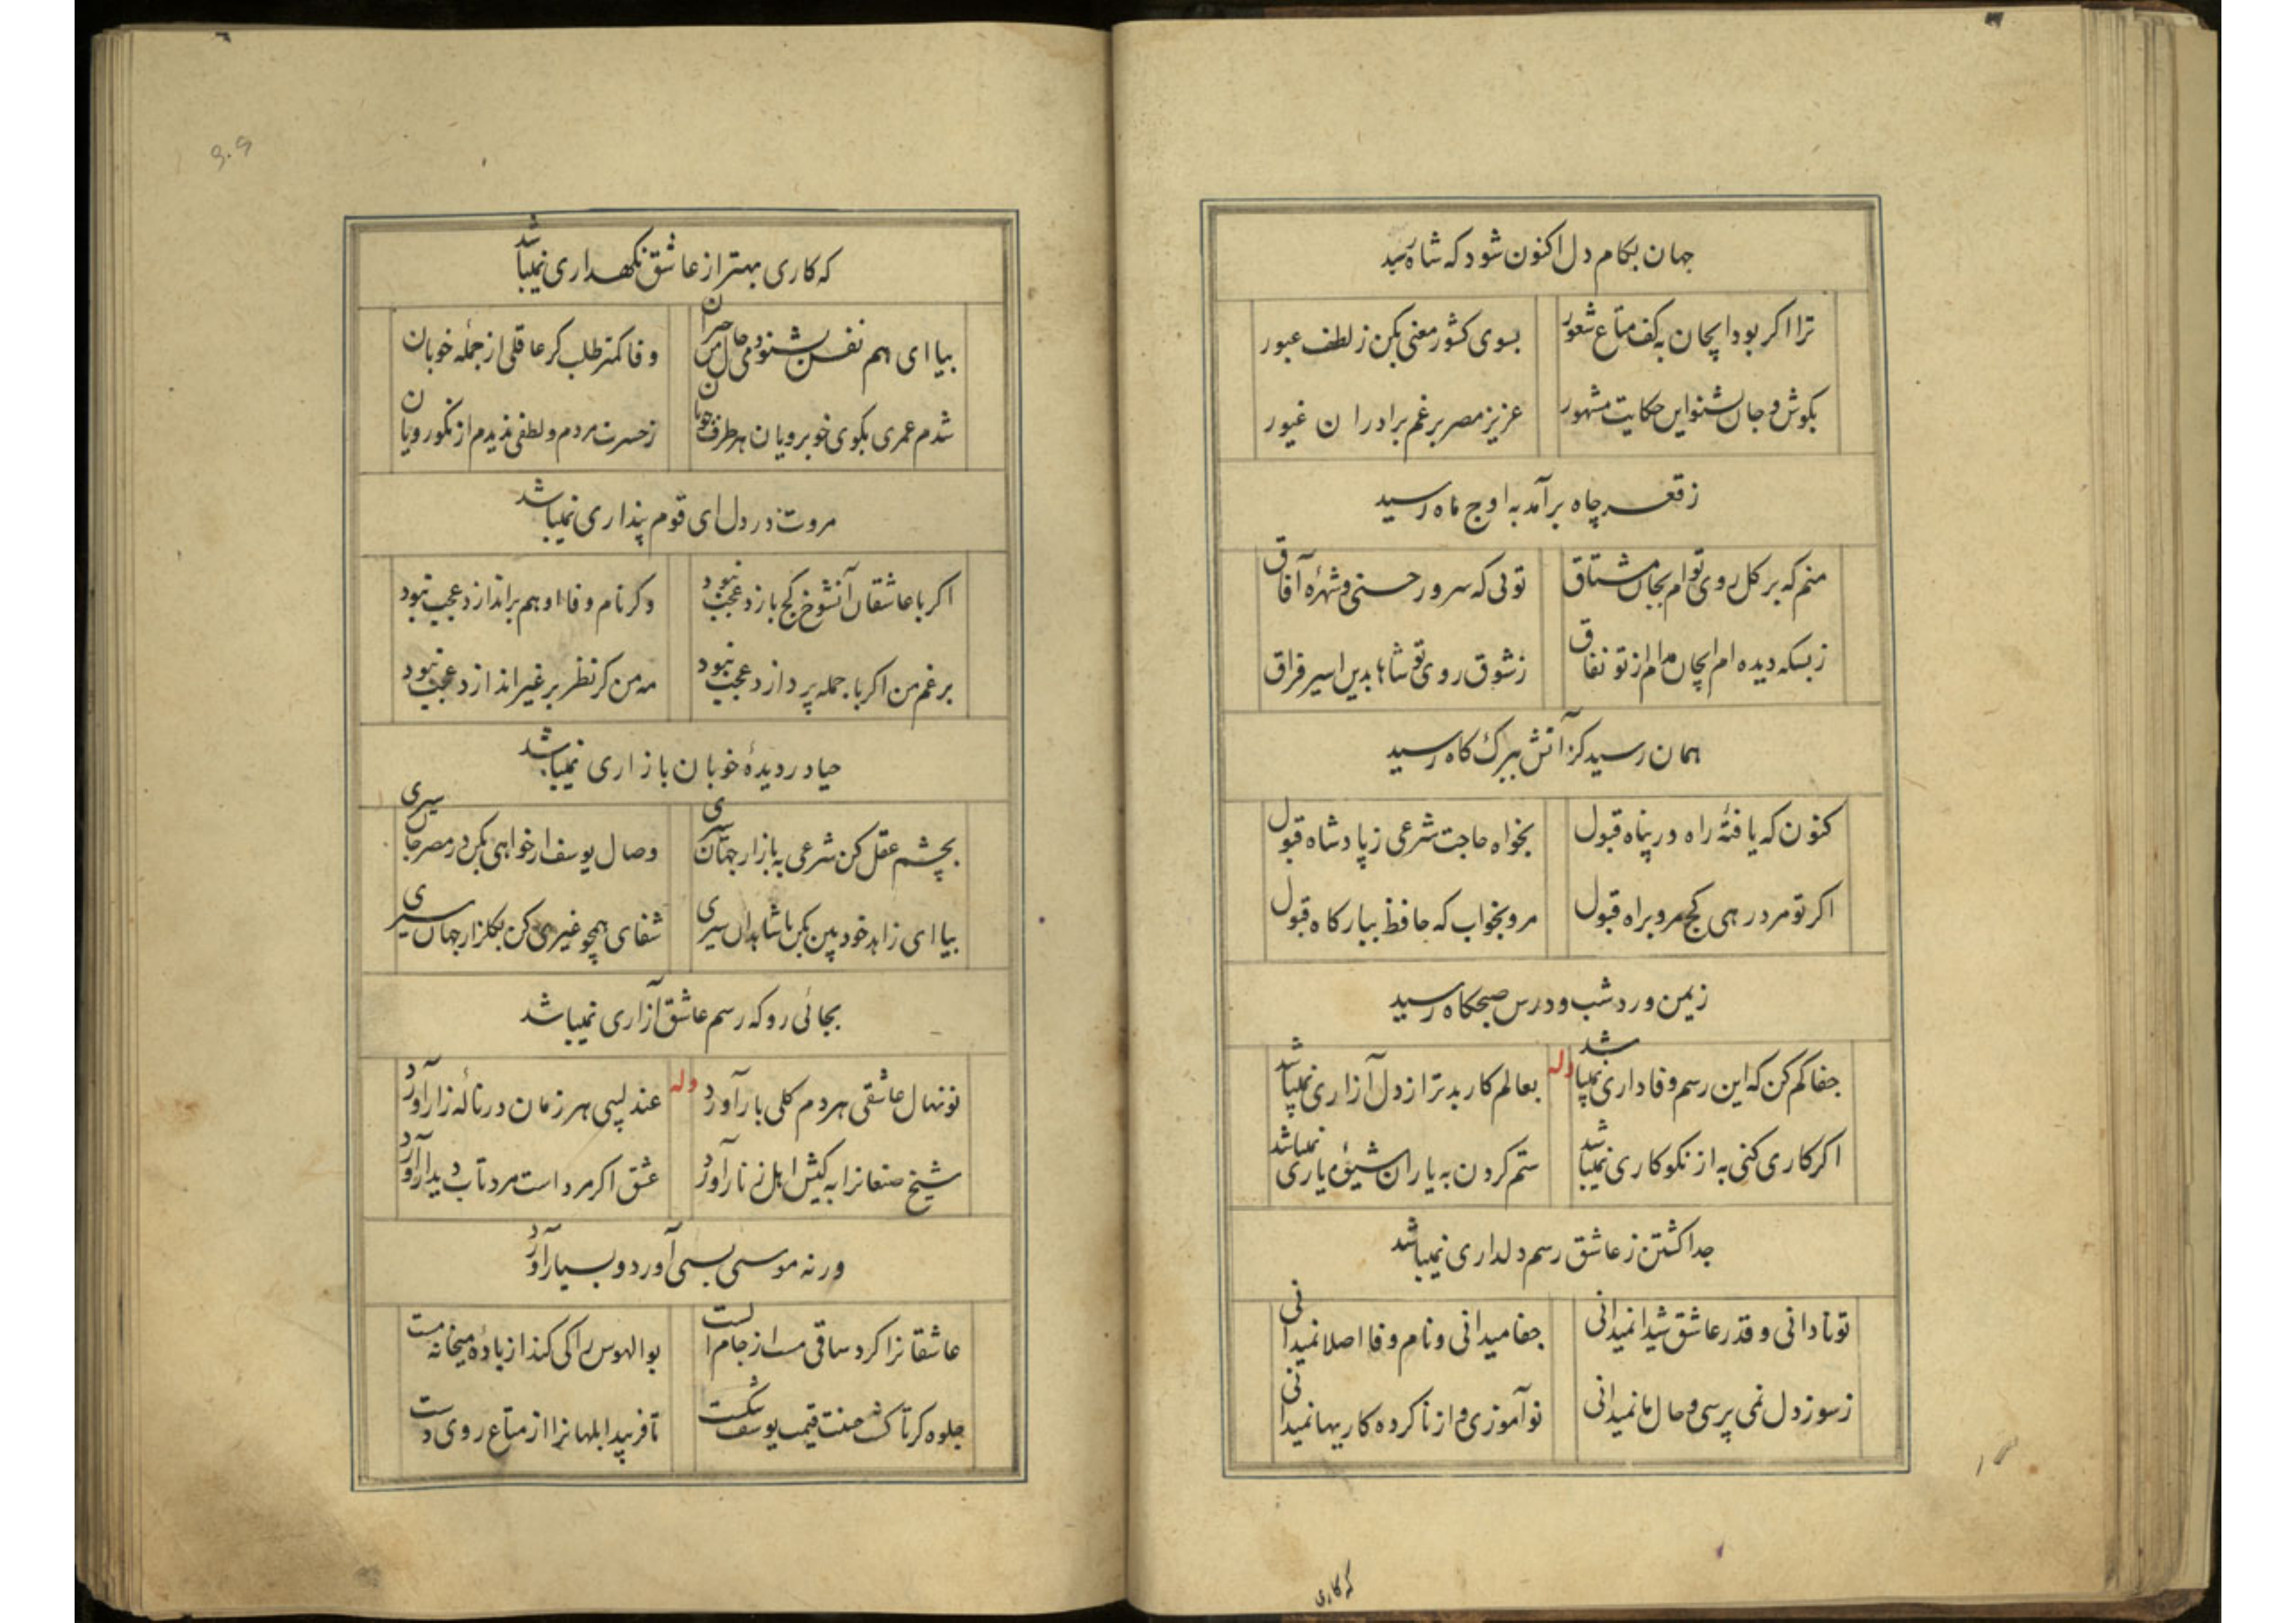 جهان بکام دل اکنون شود که شاه رسید
ترا اکر بود ایجان به کف متاع شعور بسوی کشور معنی بکن ز لطف عبور
بکوش و جان بشنو این حکایت مشهور عزیز مصر برغم برادران غیور
ز قعر چاه برآمد به اوج ماه رسید
منم که بر کل روی توام بجان مشتاق توئی که سرور حسنی و شهرۀ آفاق
ز بسکه دیده ام ایجان مدام از تو نفاق ز شوق روی تو شاها بدین اسیر فراق
همان رسید کز آتش ببرک کاه رسید
کنون که یافتۀ راه در پناه قبول بخواه حاجت شرعی ز پادشاه قبول
اکر تو مرد رهی کج مرو براه قبول مرو بخواب که حافظ ببارکاه قبول
ز یمن ورد شب و درس صبحکاه رسید
جفا کم کن که این رسم وفاداری نمیباشد وله بعالم کار بدتر از دل آزاری نمیباشد
اکر کاری کنی به از نکوکاری نمیباشد ستم کردن به یاران شیوۀ یاری نمیباشد
جدا کشتن ز عاشق رسم دلداری نمیباشد
تو نادانی و قدر عاشق شیدا نمیدانی جفا میدانی و نام وفا اصلا نمیدانی
ز سوز دل نمی پرسی و حال ما نمیدانی نوآموزی و از ناکرده کاریها نمیدانی
که کاری
که کاری بهتر از عاشق نکهداری نمیباشد
بیا ای هم نفس بشنو دمی حال من حیران وفا کمتر طلب کر عاقلی از جملۀ خوبان
شدم عمری بکوی خوبرویان هر طرف جویان ز حسرت مردم و لطفی ندیدم از نکورویان
مروت در دل ای قوم پنداری نمیباشد
اکر با عاشقان آنشوخ کج بازد عجب نبود وکر نام وفا او هم براندازد عجب نبود
برغم من اکر با جمله پردازد عجب نبود مه من کر نظر بر غیر اندازد عجب نبود
حیا در دیدۀ خوبان بازاری نمیباشد
بچشم عقل کن شرعی به بازار جهان سیری وصال یوسف ار خواهی بکن در مصر جان سیری
بیا ای زاهد خودبین بکن با شاهدان سیری شفای همچو غیری کن بکلزار جهان سیری
بجائی رو که رسم عاشق آزاری نمیباشد
نونهال عاشقی هر دم کلی بار آورد وله عندلیبی هر زمان در نالۀ زار آورد
شیخ صنعانرا به کیش اهل زنار آورد عشق اکر مرد است مرد تاب دیدار آورد
ورنه موسی بسی آورد و بسیار آورد
عاشقانرا کرد ساقی مست از جام الست بوالهوس را کی کند از بادۀ میخانه مست
جلوه کر تا کشت حسنت قیمت یوسف شکست تا فریبد ابلهانرا از متاع روی دست